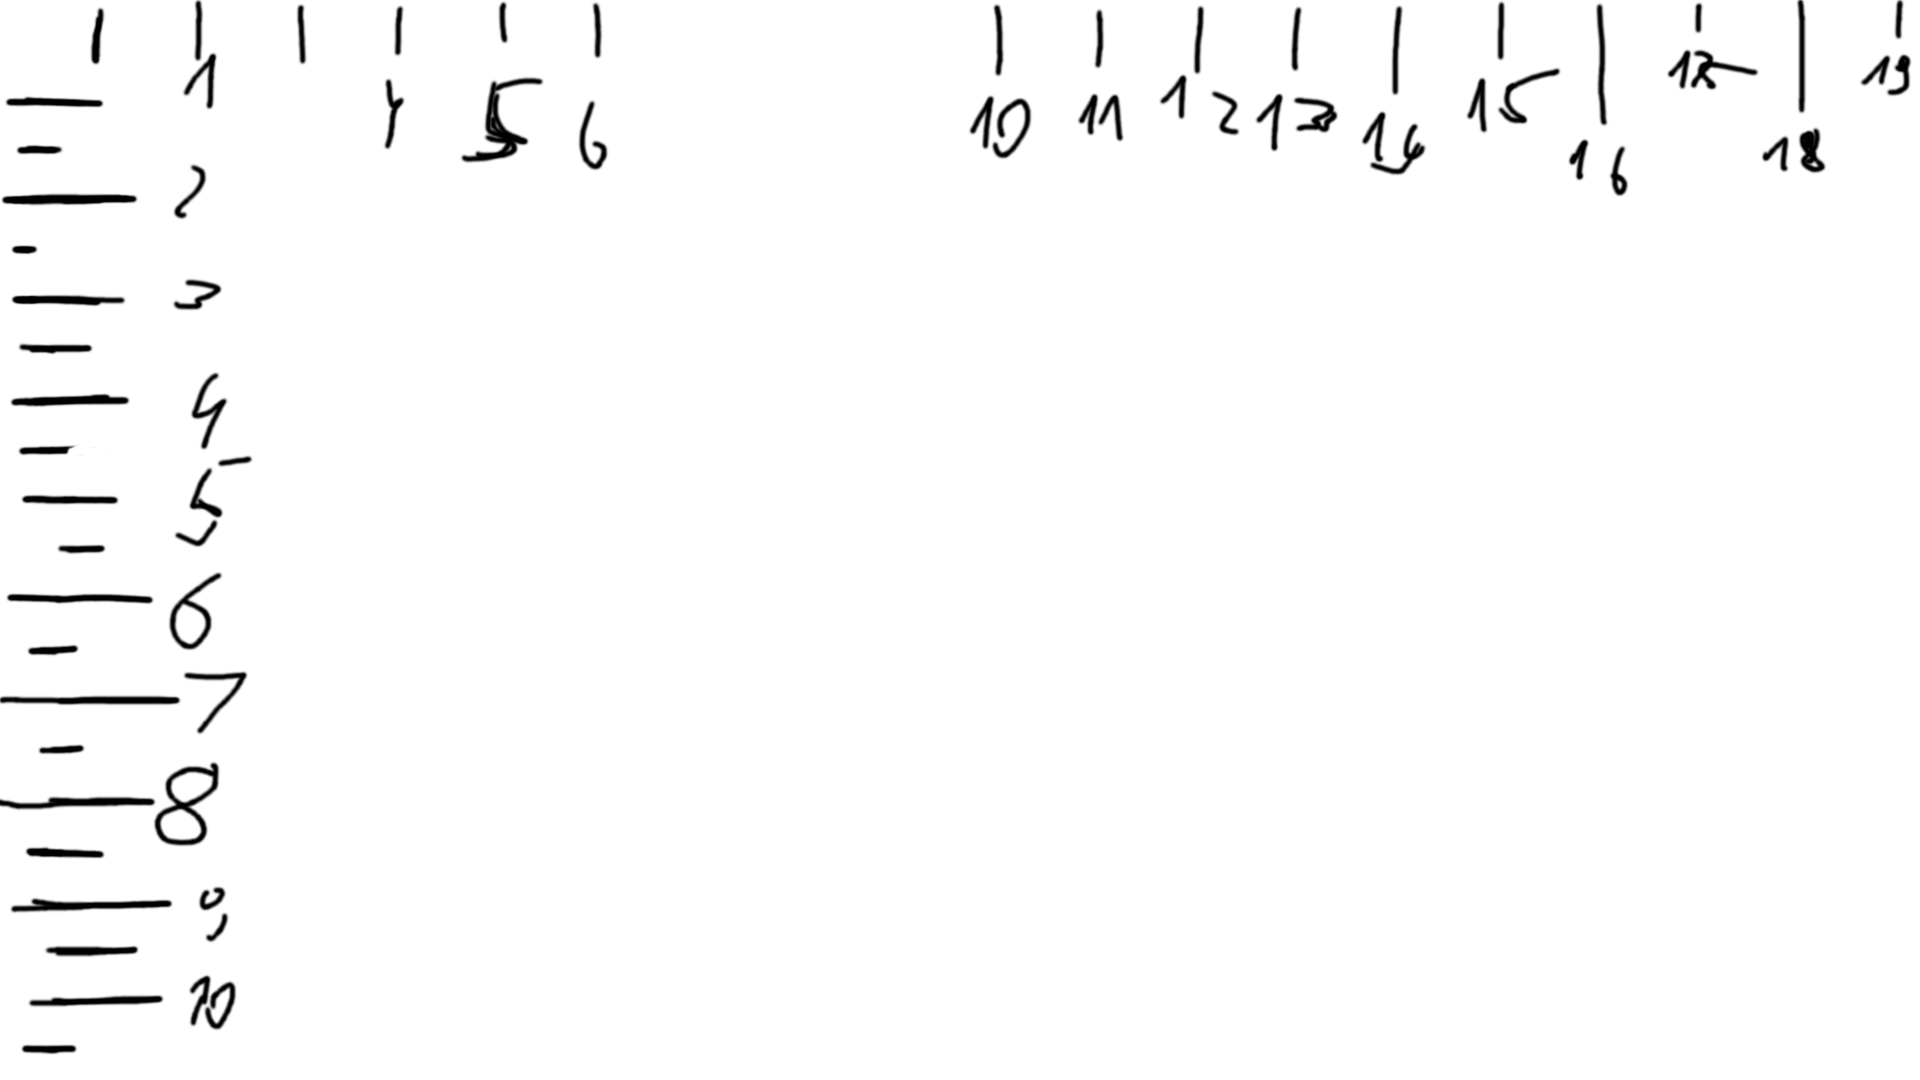 4 5 6 10 11 12 13 14 15 16 18 19
1
2
3
4
5
6
7
8
9
10